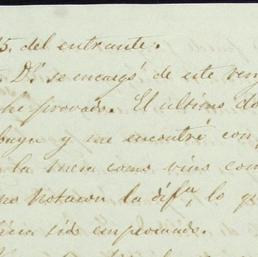 5. del entrante.
Dr. se encargó de este
he provado. El último
y me encontré con
la mesa como vino com
no notaron la difa, lo q
sido empeorado.